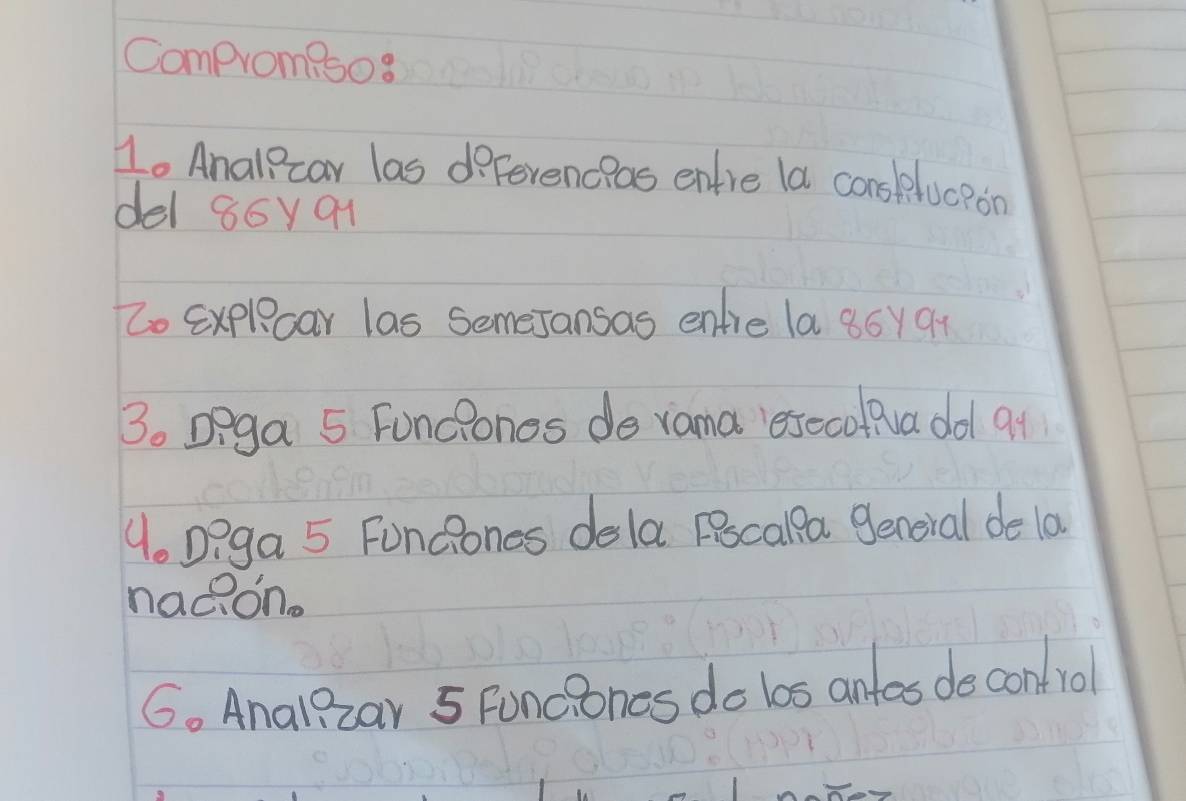 Compromiso:
1. Analizar las diferencias entre la constitución
del 86 y 91
2. Explicar las semejansas entre la 86 y 91
3. Diga 5 Funciones de rama ejecotiva del 91
4. Diga 5 Funciones de la Fiscalia general de la
nación.
6. Analizar 5 Funciones de los antes de control